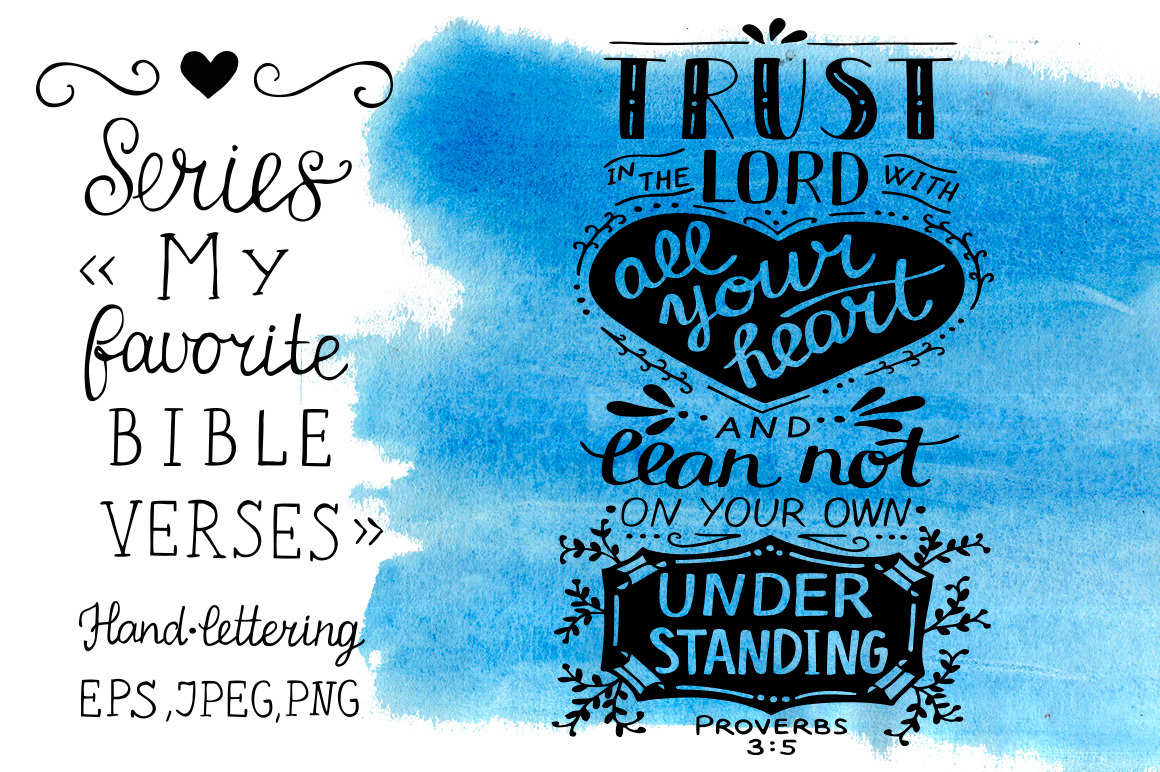 Series
« My
favorite
BIBLE
VERSES »
Hand·lettering
EPS, JPEG, PNG
TRUST
IN THE LORD WITH
all
your
heart
AND
lean not
ON YOUR OWN
UNDER
STANDING
PROVERBS
3:5